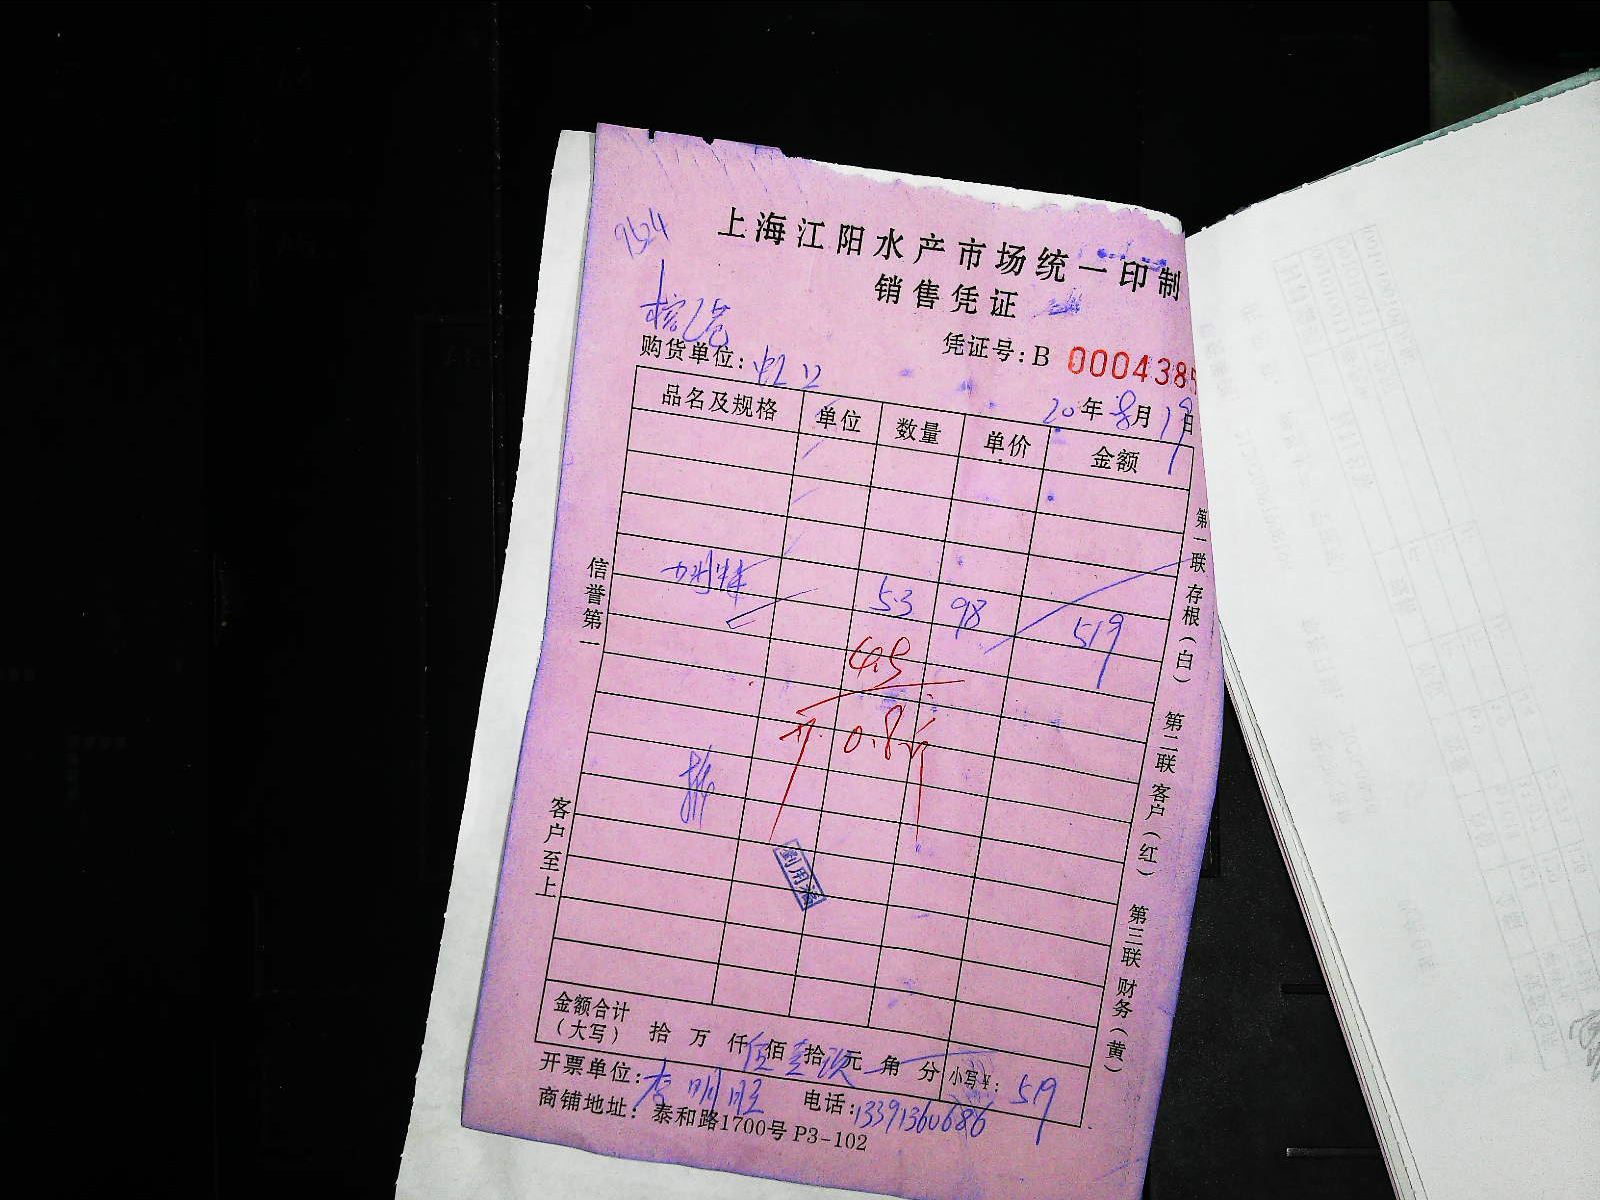 9524
上海江阳水产市场统一印制
销售凭证
凭证号:B 0004385
购货单位:虹口
20年8月19日
品名及规格 单位 数量 单价 金额
5.3 98 519
4.5
0.8斤
劉用涵
信誉第一
客户至上
第一联 存根(白) 第二联 客户(红) 第三联 财务(黄)
金额合计(大写) 拾 万 仟伍佰壹拾玖元 角 分 小写¥: 519
开票单位:李明旺 电话:13391360686
商铺地址: 泰和路1700号 P3-102